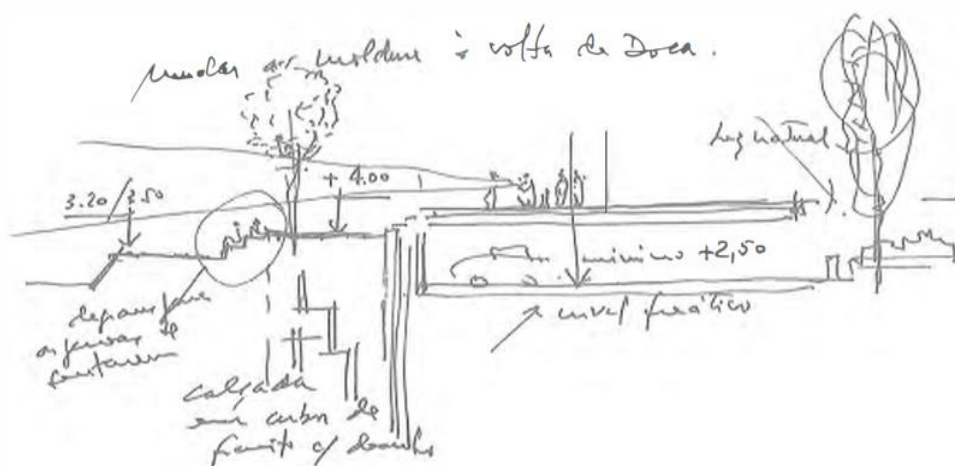 mudar as molduras à volta da Doca.
luz natural
3.20/3.50
+ 4.00
minimo +2,50
nivel freático
degraus para
as pessoas se
sentarem
calçada
em cubos de
granito c/ desenho